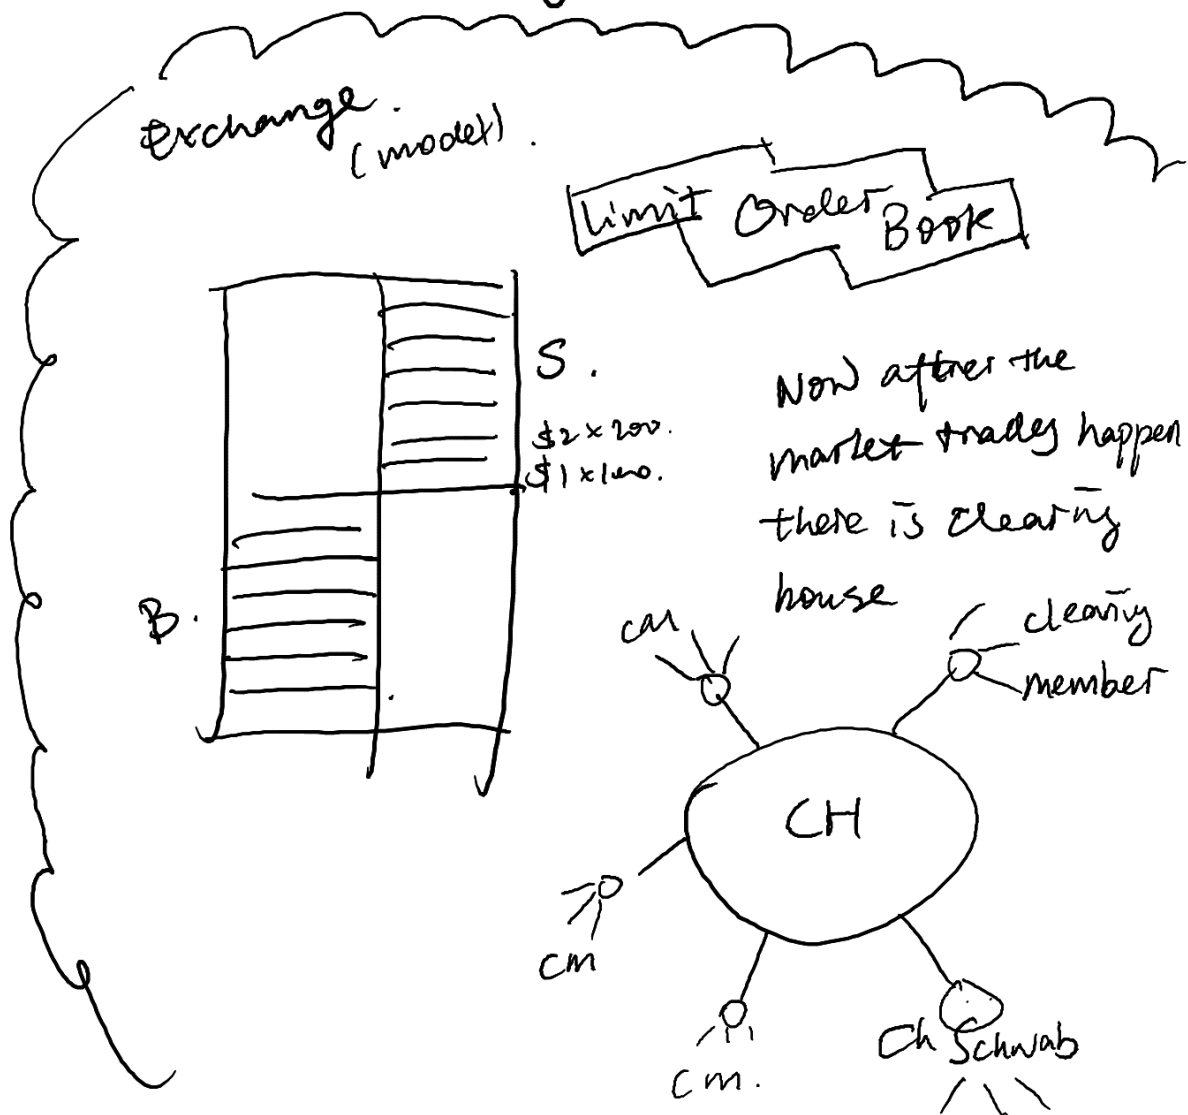 Exchange.
(model).
Limit Order Book
S.
$2 x 200.
$1 x 100.
B.
Now after the
market trades happen
there is clearing
house
clearing
member
CH
cm
cm.
Ch Schwab